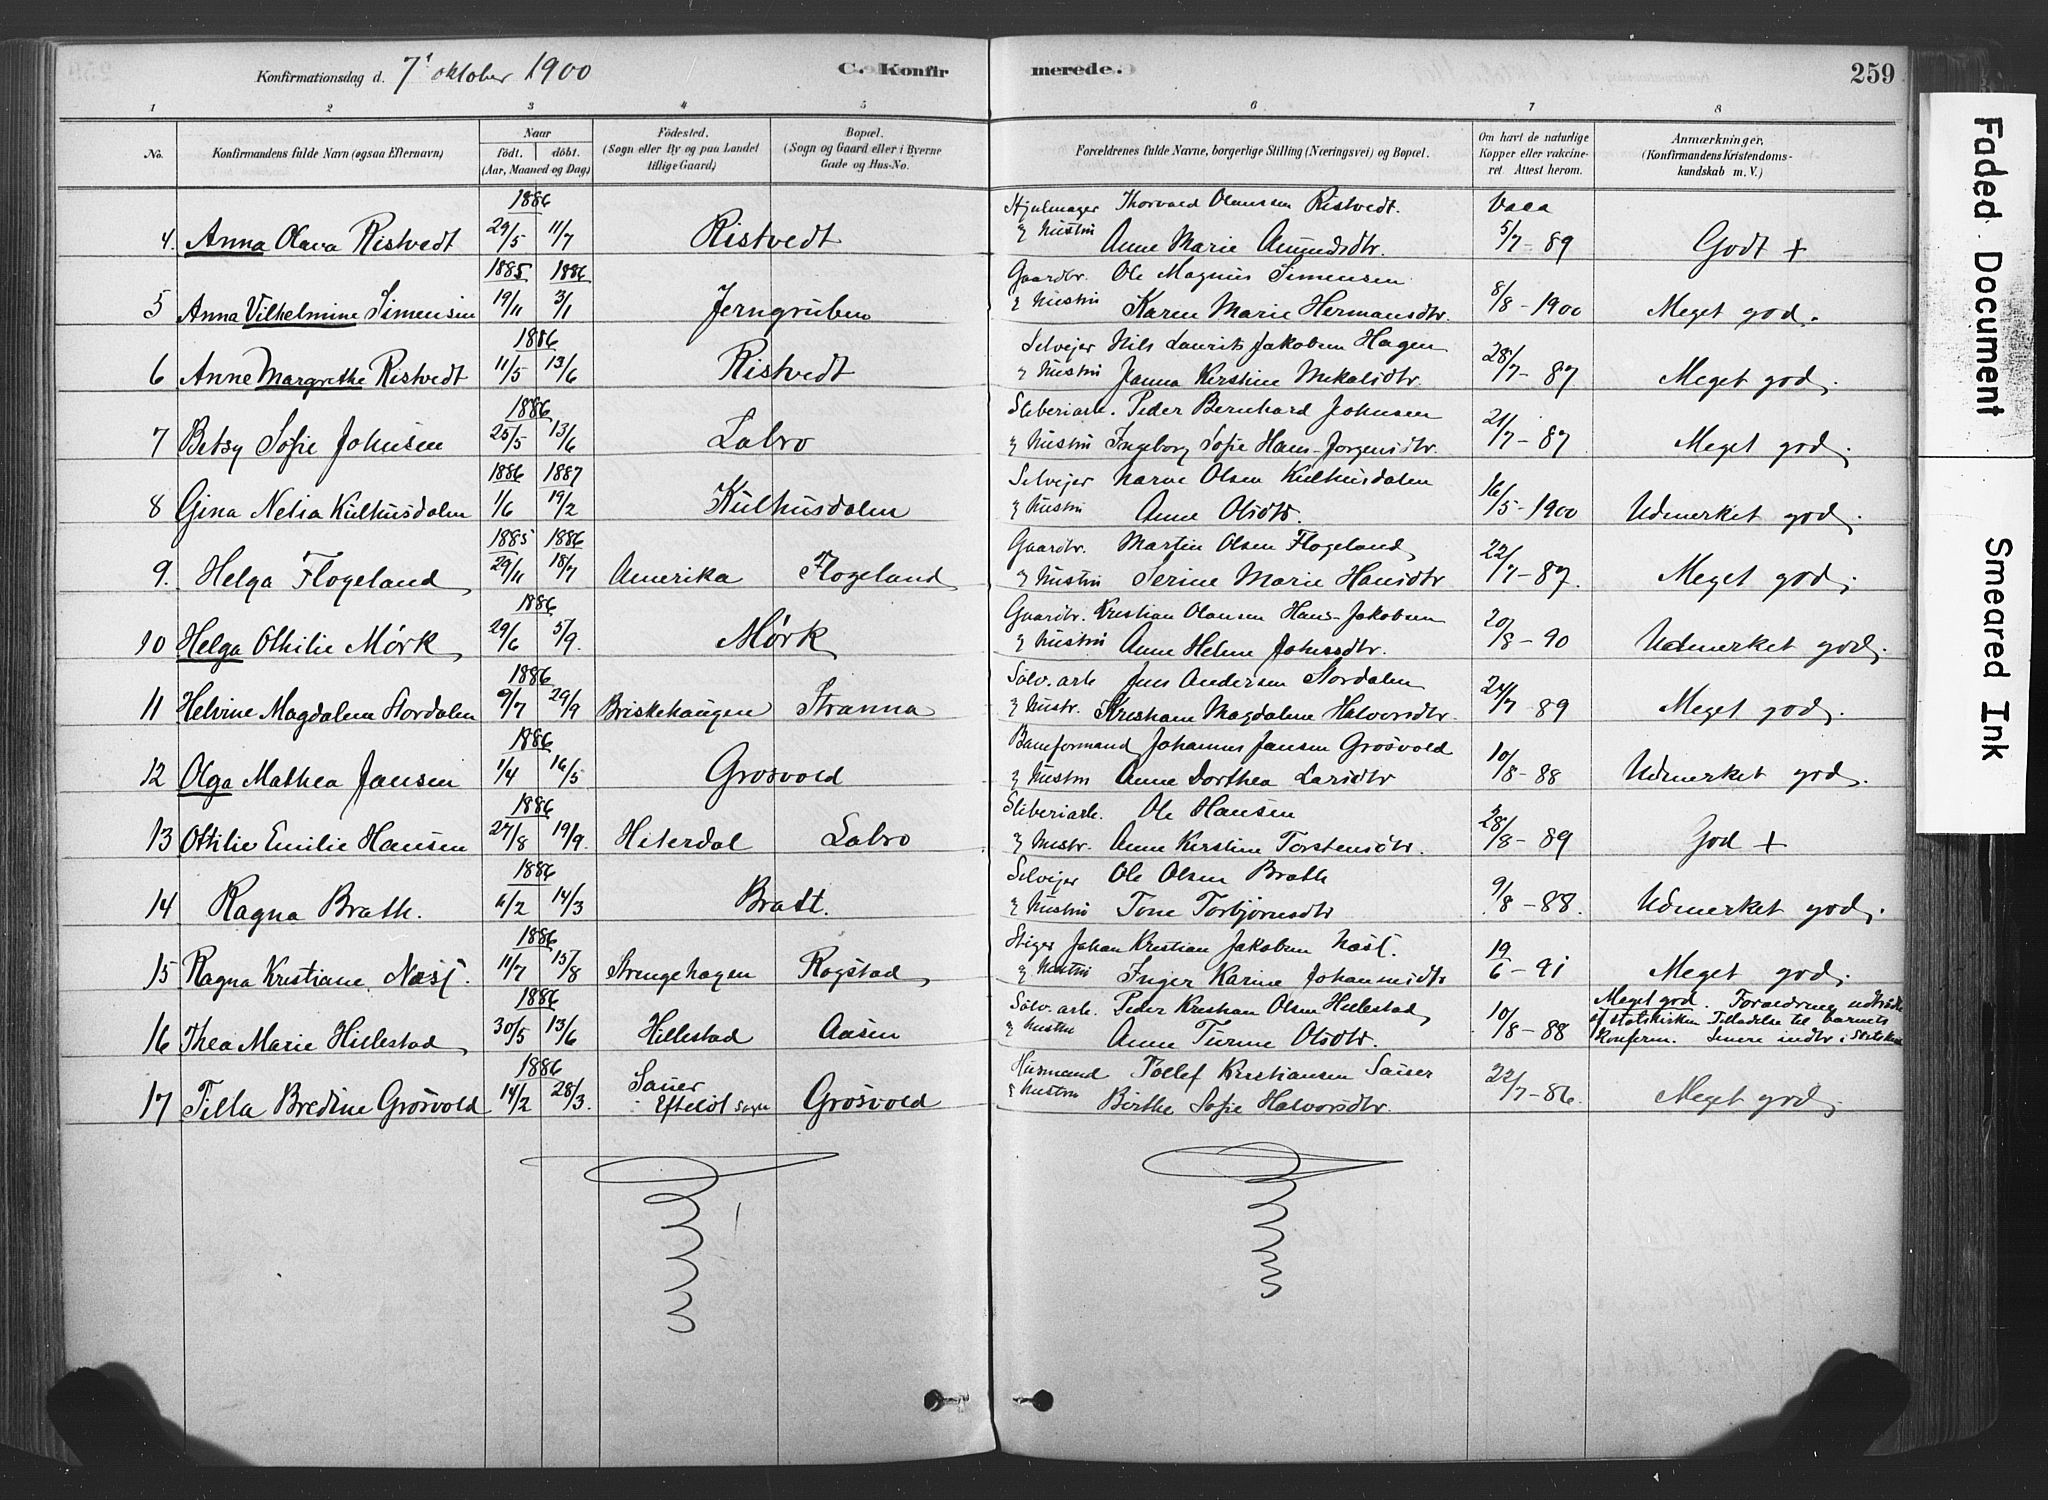 Konfirmationsdag d. 7' oktober 1900 C. Konfirmerede. 259
1 2 3 4 5 6 7 8
No. Konfirmandens fulde Navn (ogsaa Efternavn) Naar født. døbt. (Aar, Maaned og Dag) Fødested. (Sogn eller By og paa Landet tillige Gaard) Bopæl. (Sogn og Gaard eller i Byerne Gade og Hus-No. Forældrenes fulde Navne, borgerlige Stilling (Næringsvei) og Bopæl. Om havt de naturlige Kopper eller vakcineret. Attest herom. Anmærkninger, (Konfirmandens Kristendomskundskab m. V.)
1886 Hjulmager Thorvald Olaussen Ristvedt. Vacc
4. Anna Olava Ristvedt 29/5 11/7 Ristvedt & Hustru Anne Marie Amundsdtr. 5/7 - 89 Godt +
1885 1886 Gaardbr. Ole Magnus Simensen
5 Anna Vilhelmine Simensen 19/11 3/1 Jerngruben & Hustru Karen Marie Hermansdtr. 8/8 - 1900 Meget god.
1886 Selvejer Nils Laurits Jakobsen Hagen
6 Anne Margrethe Ristvedt 11/5 13/6 Ristvedt & Hustru Janna Kirstine Mikalsdtr 28/7 - 87 Meget god.
1886 Sliberiarb. Peder Bernhard Johnsen
7 Betsy Sofie Johnsen 25/5 13/6 Labro & Hustru Ingeborg Sofie Hans-Jørgensdtr. 21/7 - 87 Meget god.
1886 1887 Selvejer Narve Olsen Kulhusdalen
8 Gina Nelia Kulhusdalen 1/6 19/2 Kulhusdalen & Hustru Anne Olsdtr. 16/5 - 1900 Udmerket god.
1885 1886 Gaardbr. Martin Olsen Flogeland
9. Helga Flogeland 29/11 18/7 Amerika Flogeland & Hustru Serine Marie Hansdtr 22/7 - 87. Meget god.
1886 Gaardbr. Kristian Olausen Hans-Jakobsen
10 Helga Othilie Mörk 29/6 5/9. Mörk & Hustru Anne Helene Johnsdtr. 20/8 - 90 Udmerket god.
1886 Sølv. arb Jens Andersen Stordalen
11 Helvine Magdalene Stordalen 9/7 29/9 Briskehaugen Stranna & Hustr. Kristiane Magdalene Halvorsdtr. 24/7 - 89 Meget god.
1886 Baneformand Johannes Jansen Grosvold
12 Olga Mathea Jansen 1/4 16/5 Grosvold & Hustru Anne Dorthea Larsdtr 10/8 - 88 Udmerket god.
1886 Sliberiarb. Ole Hansen
13 Othilie Emilie Hansen 27/8 19/9. Hiterdal Labro & Hustr. Anne Kirstine Torstensdtr. 28/8 - 89 God +
1886 Selvejer Ole Olsen Brath
14 Ragna Brath. 6/2 14/3 Bratt. & Hustru Tone Torbjørnsdtr 9/8 - 88. Udmerket god.
1886 Stiger Johan Kristian Jakobsen Næss.
15 Ragna Kristiane Næss. 11/7 15/8 Strengehagen Rogstad & Hustru Inger Karine Johannesdtr 19/6 - 91 Meget god.
1886 Sølv. arb. Peder Kristian Olsen Hillestad
16 Thea Marie Hillestad 30/5 13/6 Hillestad Aasen & Hustru Anne Turine Olsdtr. 10/8 - 88 Meget god. Forældrene udtraadte
af statskirken Tilladelse til barnets
Konfirm. Senere indtr. i Statskirk
1886 Husmand Tollef Kristiansen Sauer
17 Tilla Bredine Grosvold 14/2 28/3. Sauer i Efteløt sogn Grosvold & Hustru Birthe Sofie Halvorsdtr. 22/7 - 86. Meget god.
Faded Document
Smeared Ink